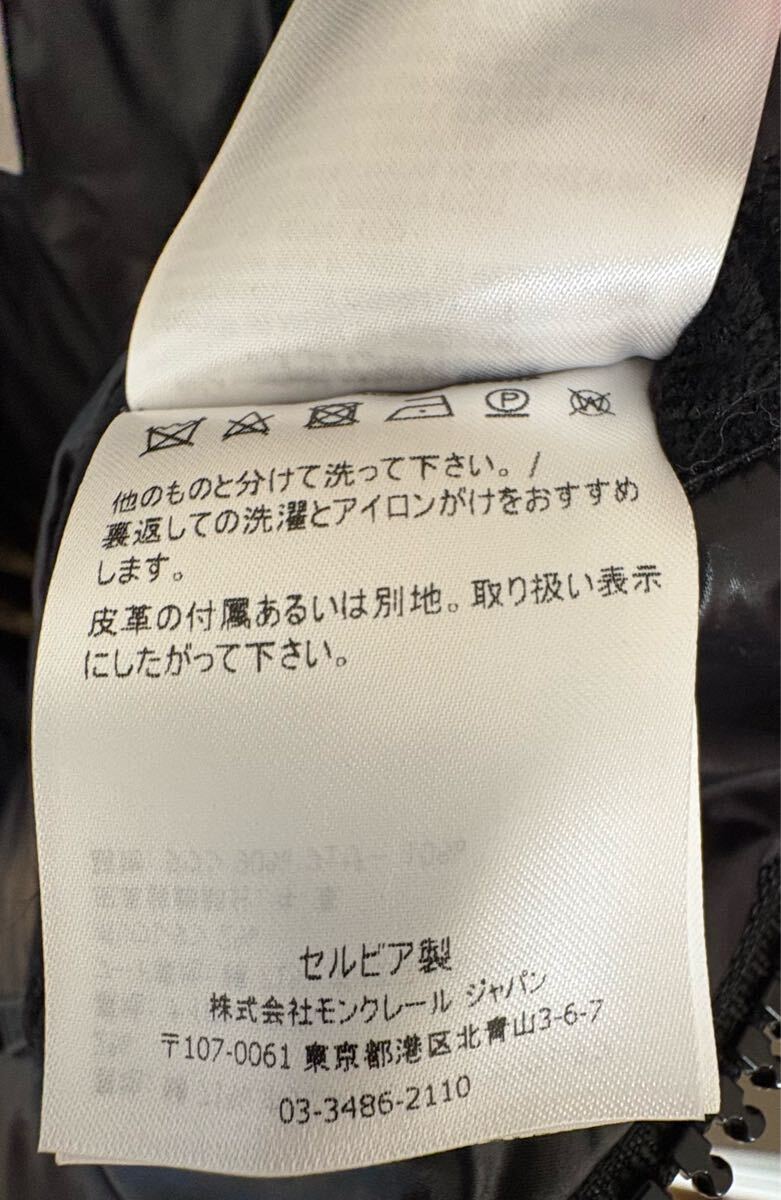 他のものと分けて洗って下さい。/
裏返しての洗濯とアイロンがけをおすすめ
します。
皮革の付属あるいは別地。取り扱い表示
にしたがって下さい。
セルビア製
株式会社モンクレール ジャパン
〒107-0061 東京都港区北青山3-6-7
03-3486-2110